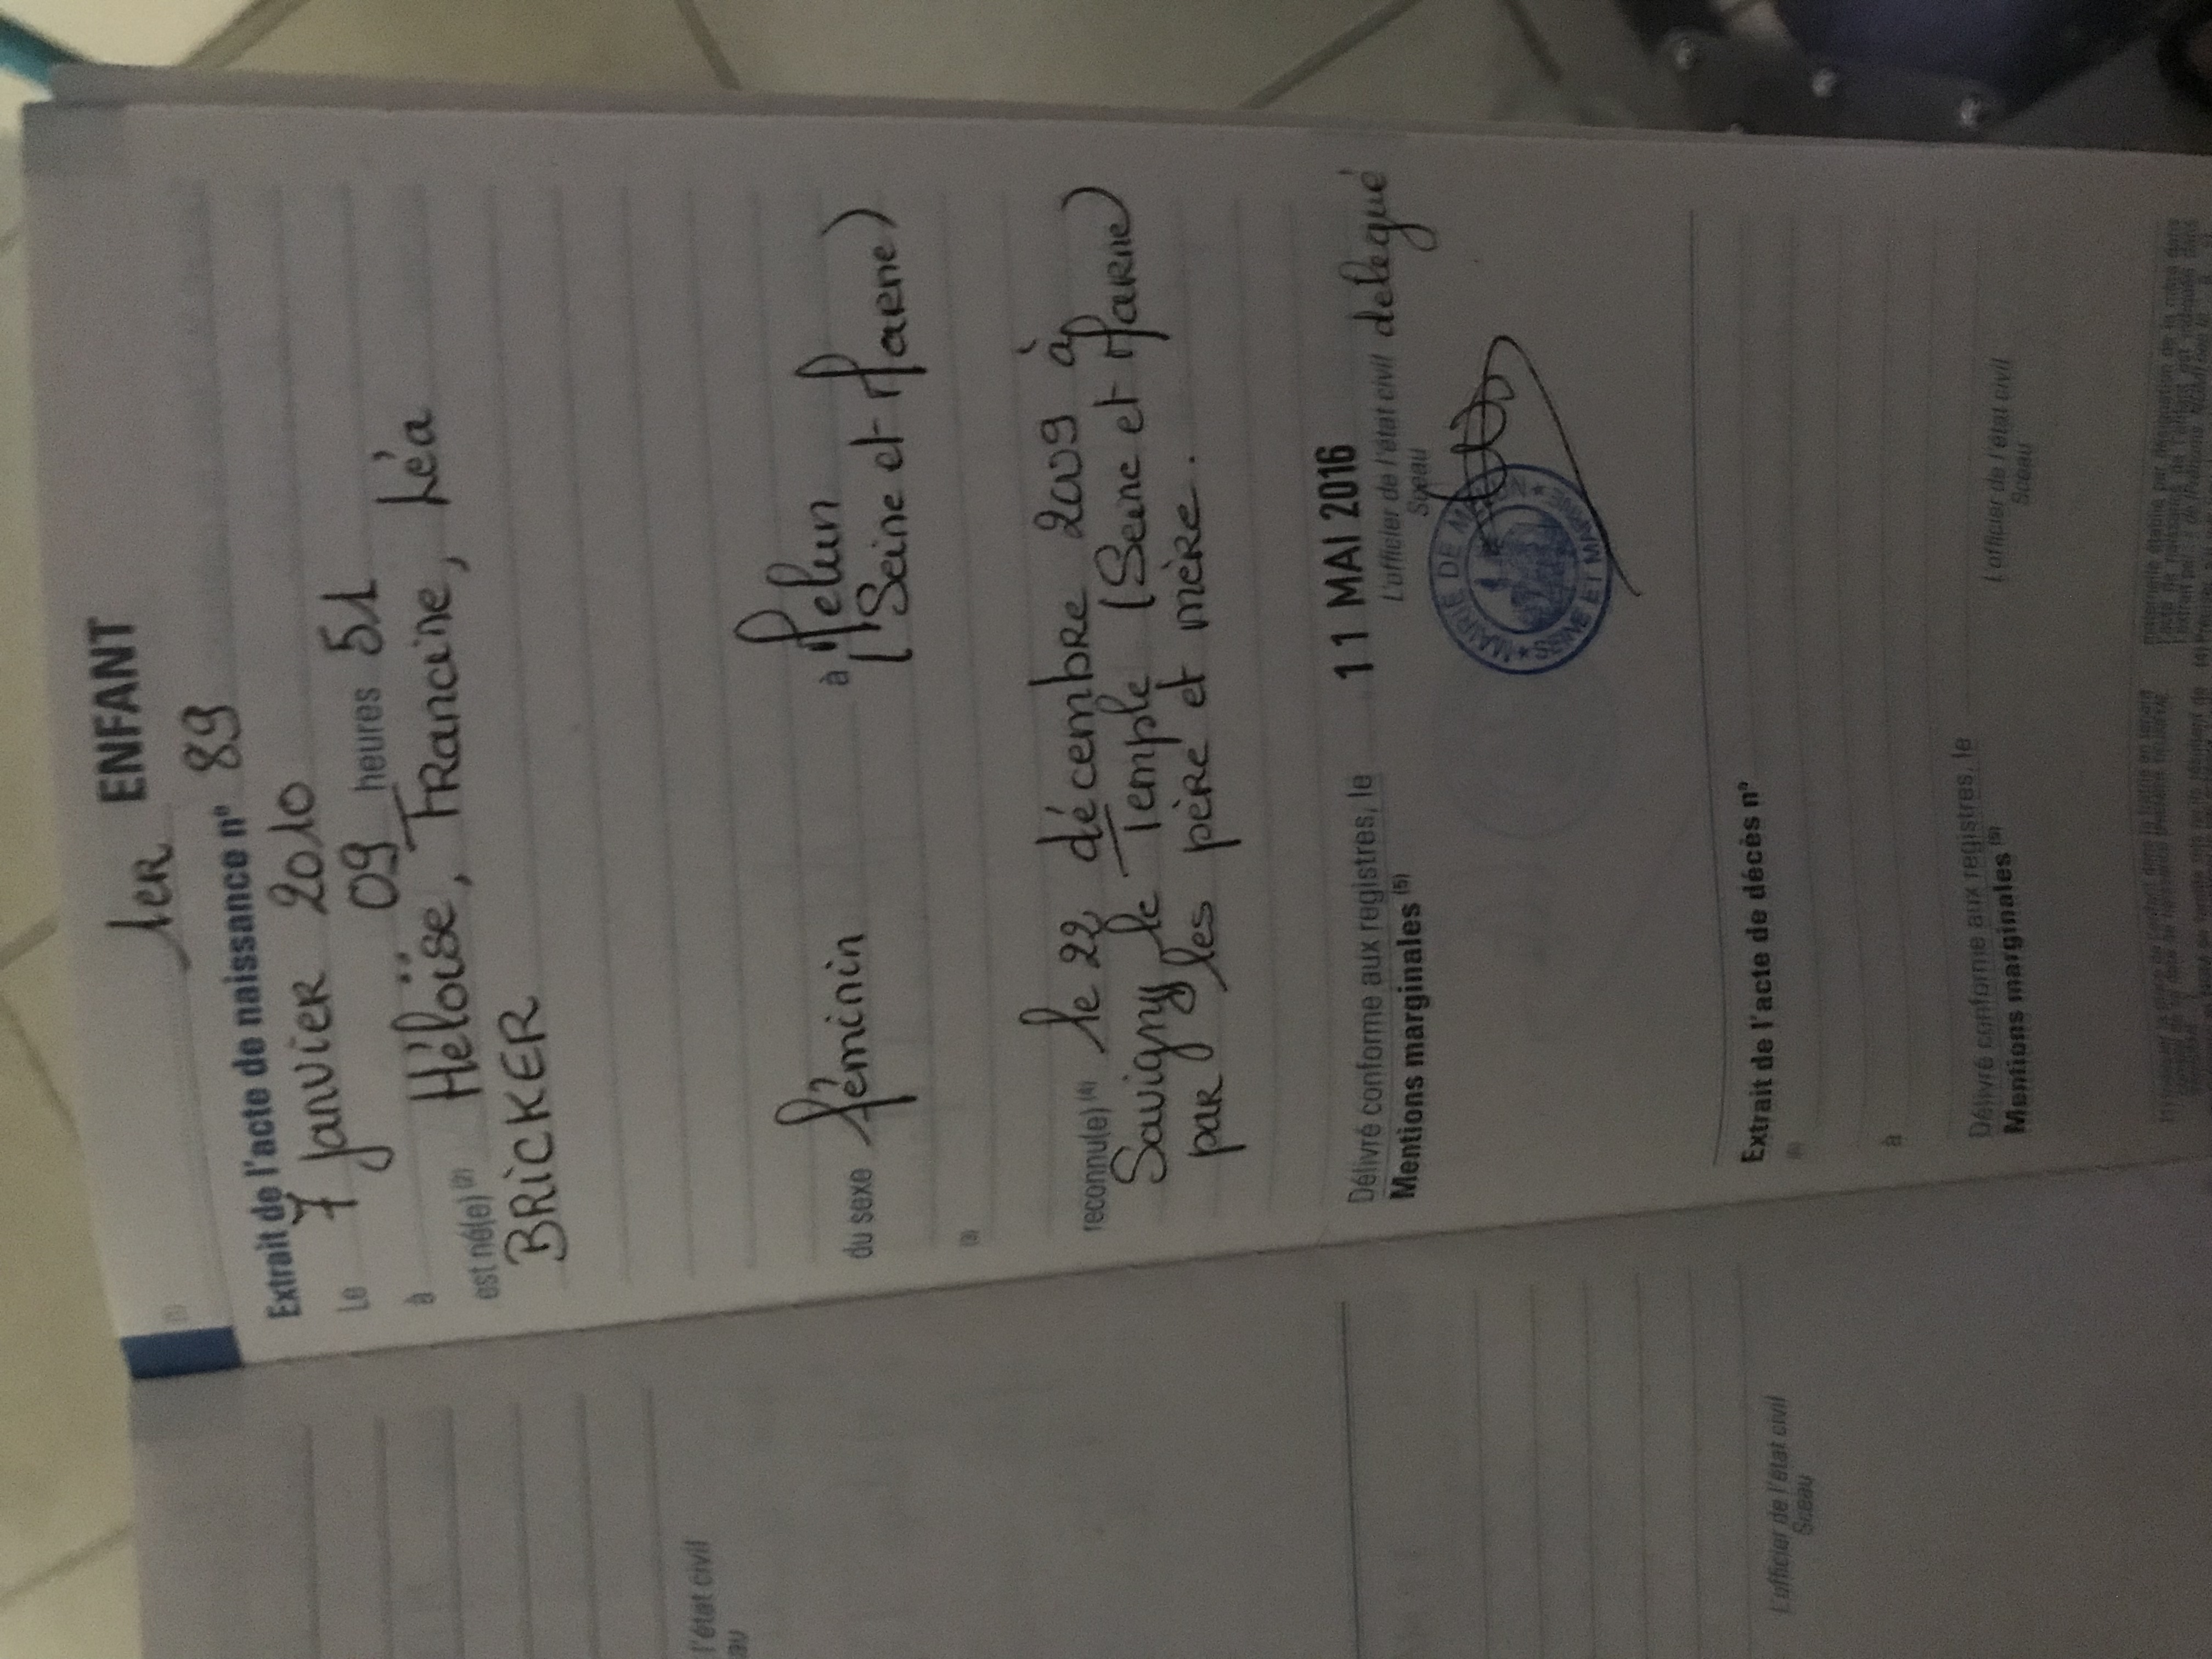 1ER ENFANT
(1)
Extrait de l'acte de naissance n° 89
Le 7 janvier 2010
à 09 heures 51
est né(e) (2) Héloïse, Francine, Léa
BRICKER
du sexe féminin à Melun
(Seine et Marne)
(3)
reconnu(e) (4) le 22 décembre 2009 à
Savigny le Temple (Seine et Marne)
par les père et mère.
Délivré conforme aux registres, le 11 MAI 2016
Mentions marginales (5) L'officier de l'état civil délégué
Sceau
MAIRIE DE
SEINE ET MARNE
Extrait de l'acte de décès n°
(6)
à
Délivré conforme aux registres, le
Mentions marginales L'officier de l'état civil
Sceau
l'état civil
L'officier de l'état civil
Sceau